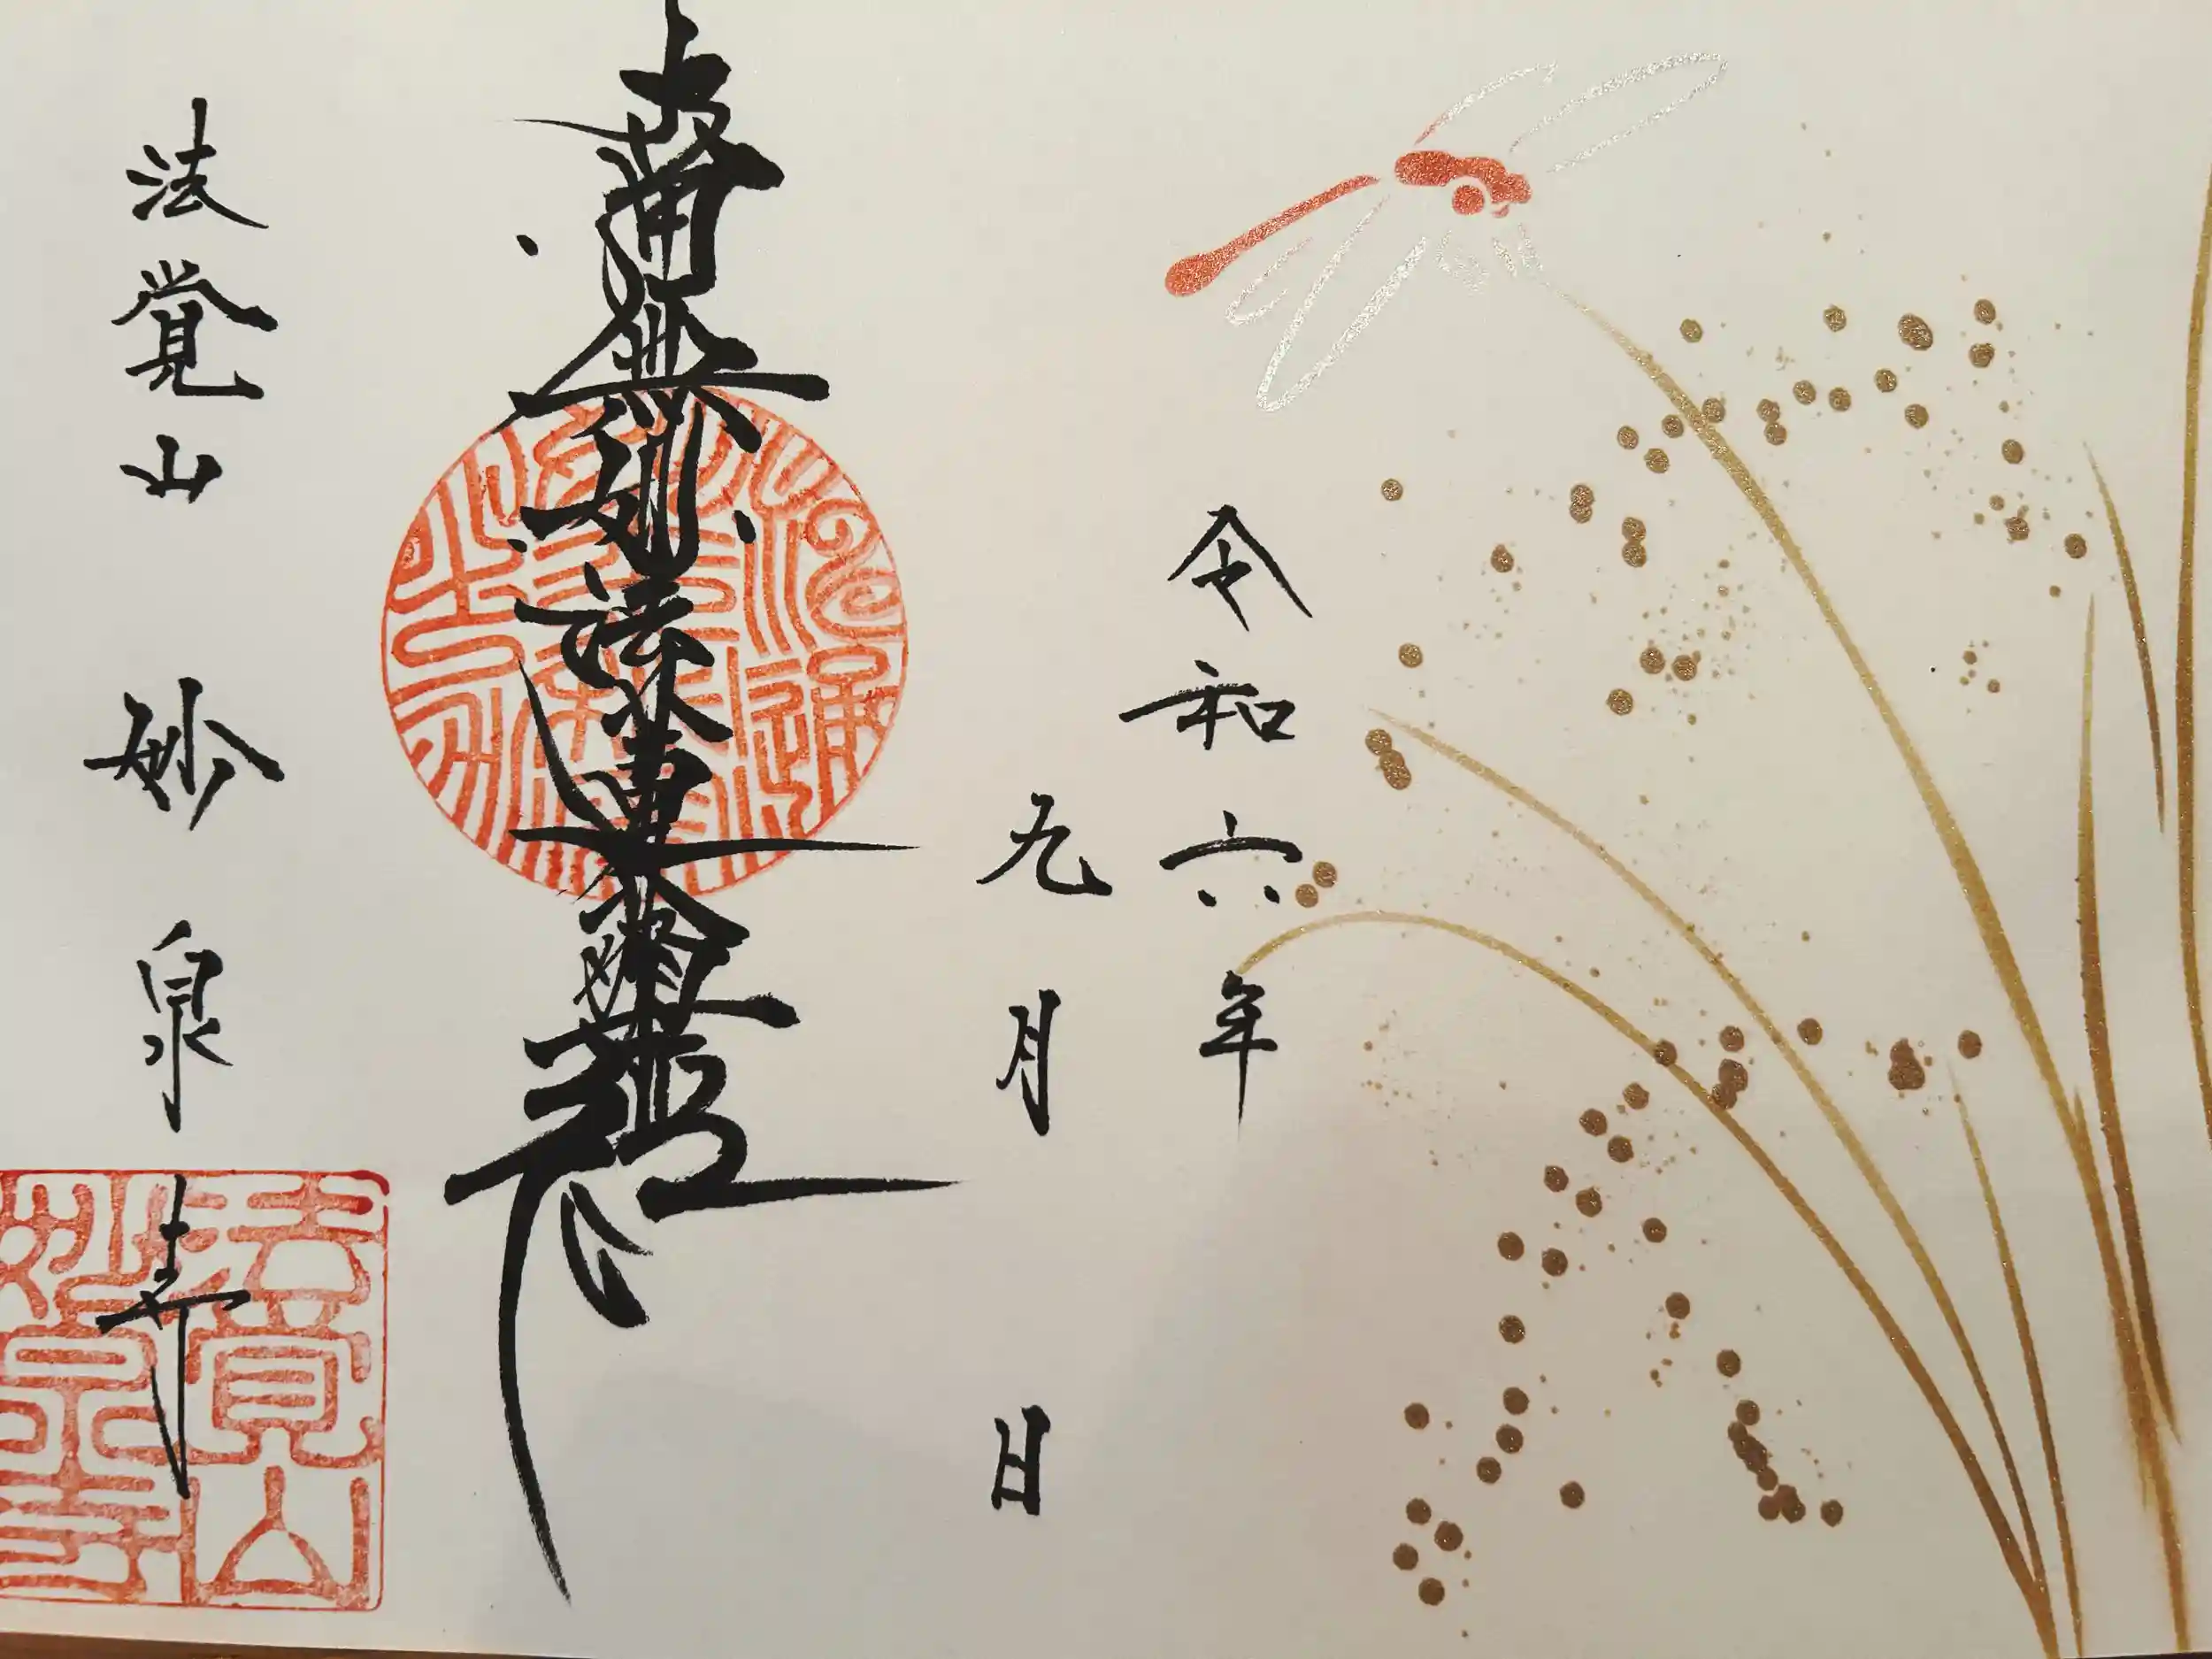 令和六年
九月 日
南無妙法蓮華經
法覚山 妙泉寺
法覺山
妙泉寺